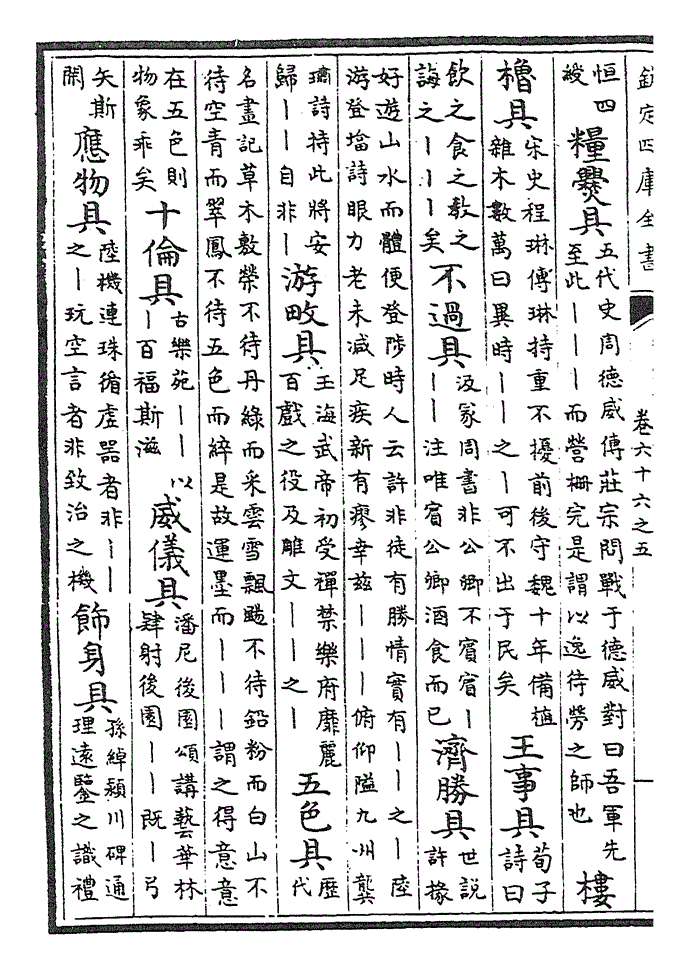 欽定四庫全書 卷六十六之五
恒四
綬
糧爨具
五代史周德威傳莊宗問戰于德威對曰吾軍先
至此｜｜｜而營柵完是謂以逸待勞之師也
樓
櫓具
宋史程琳傳琳持重不擾前後守魏十年備植
雜木數萬曰異時｜｜之｜可不出于民矣
王事具
荀子
詩曰
飲之食之教之
誨之｜｜｜矣
不過具
汲冢周書非公卿不賓賓｜
｜｜注唯賓公卿酒食而已
濟勝具
世説
許掾
好遊山水而體便登陟時人云許非徒有勝情實有｜｜之｜陸
游登㙮詩眼力老未减足疾新有瘳幸兹｜｜｜俯仰隘九州龔
璛詩持此將安
歸｜｜自非｜
游畋具
玉海武帝初受禪禁樂府靡麗
百戲之役及雕文｜｜之｜
五色具
歷
代
名畫記草木敷榮不待丹綠而采雲雪飄颺不待鉛粉而白山不
待空青而翠鳳不待五色而綷是故運墨而｜｜｜謂之得意意
在五色則
物象乖矣
十倫具
古樂苑｜｜以
｜百福斯滋
威儀具
潘尼後園頌講藝華林
肄射後園｜｜既｜弓
矢斯
閑
應物具
陸機連珠循虚器者非｜｜
之｜玩空言者非致治之機
飾身具
孫綽潁川碑通
理遠鑒之識禮